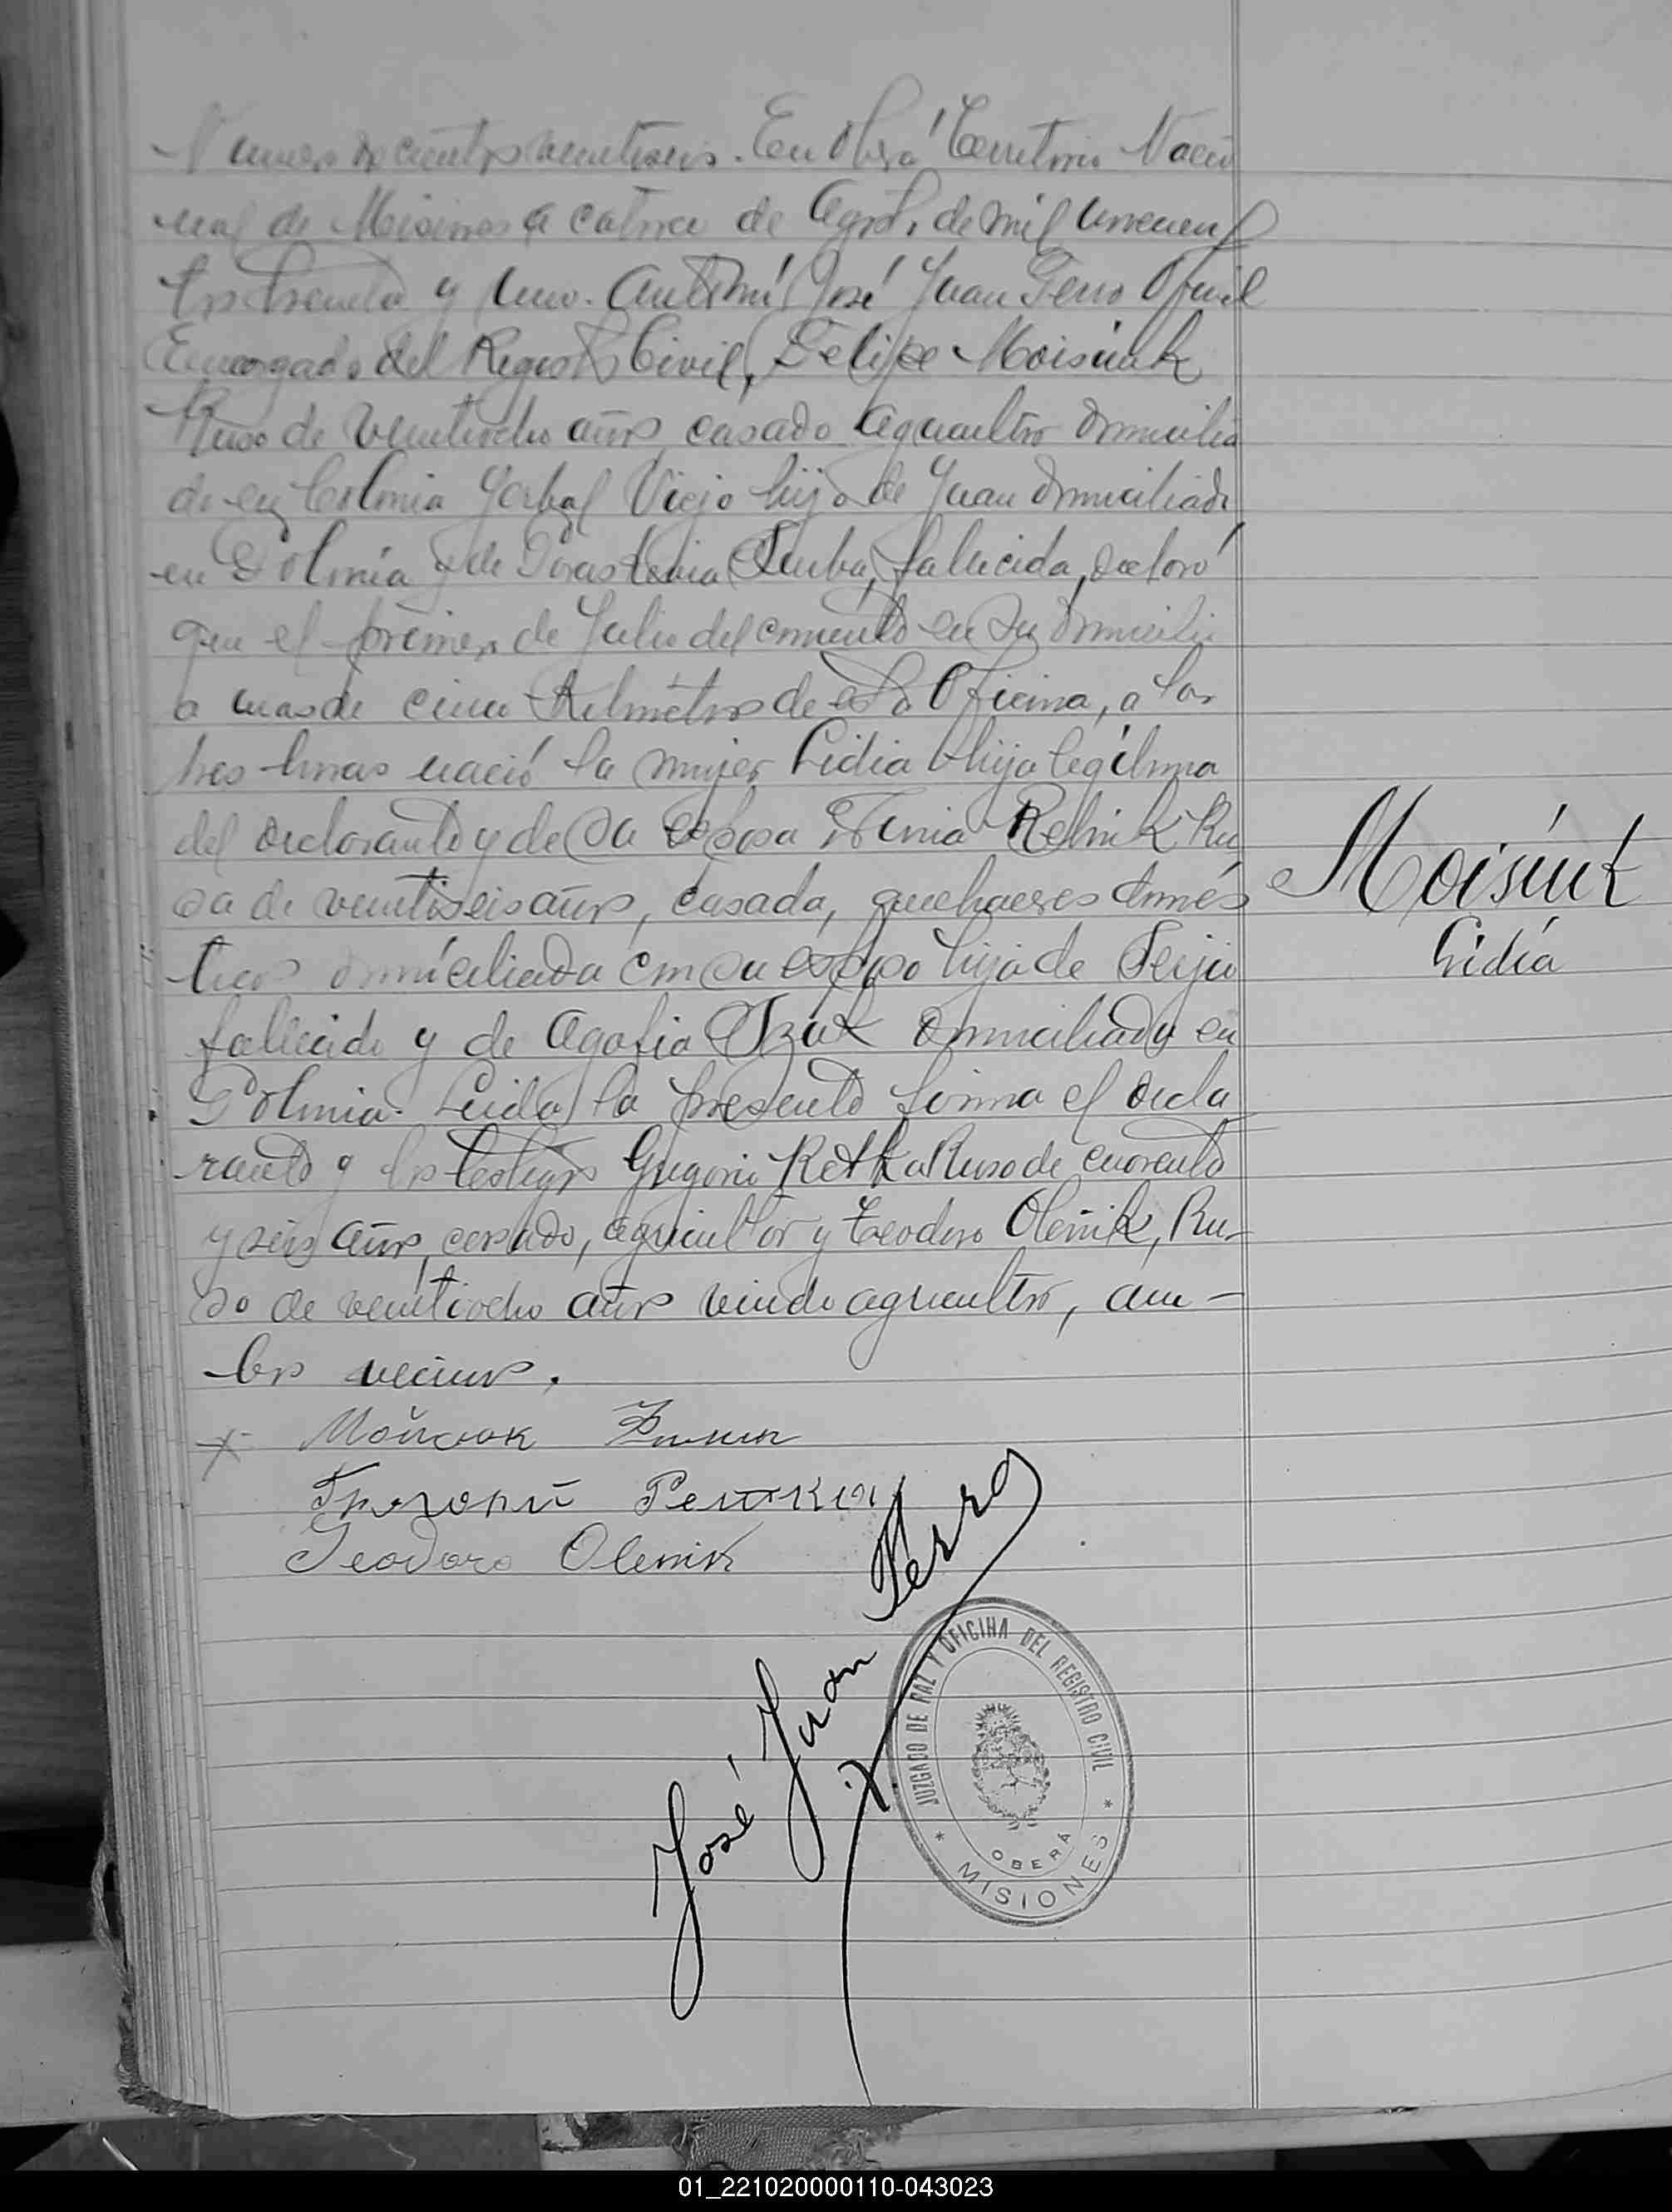 Numero docientos veintiseis. En Oberá Territorio Nacio
nal de Misiones a catorce de Agosto de mil novecien
tos treinta y uno. Ante mí José Juan Ferro Oficial
Encargado del Registro Civil, Felipe Moisiuk
Ruso de veintiocho años casado agricultor domicilia
do en Colonia Yerbal Viejo hijo de Juan domiciliado
en Polonia y de fallecida, declaró
que el primero de Julio del corriente en su domicilio
a mas de cinco kilometros de esta Oficina, a las
tres horas nació la mujer Lidia hija legítima
del declarante y de su esposa Relnik Ru
sa de veintiseis años, casada, quehaceres domés
ticos domiciliada con su esposo hija de
fallecido y de Agafia domiciliada en
Polonia. Leida la presente firma el decla
rante y los testigos Gregorio Retka Ruso de cuarenta
y seis años, casado, agricultor y Teodoro Olenik, Ru-
so de veintiocho años viudo agricultor, am-
bos vecinos.
x Мойсюк
Григорий
Teodoro Olenik
José Juan Ferro
Moisiuk
Lidia
JUZGADO DE PAZ Y OFICINA DEL REGISTRO CIVIL
OBERÁ
* MISIONES *
01_221020000110-043023